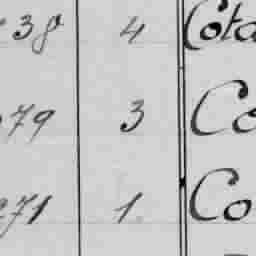 38 4 Cota
79 3 Co
271 1. Co